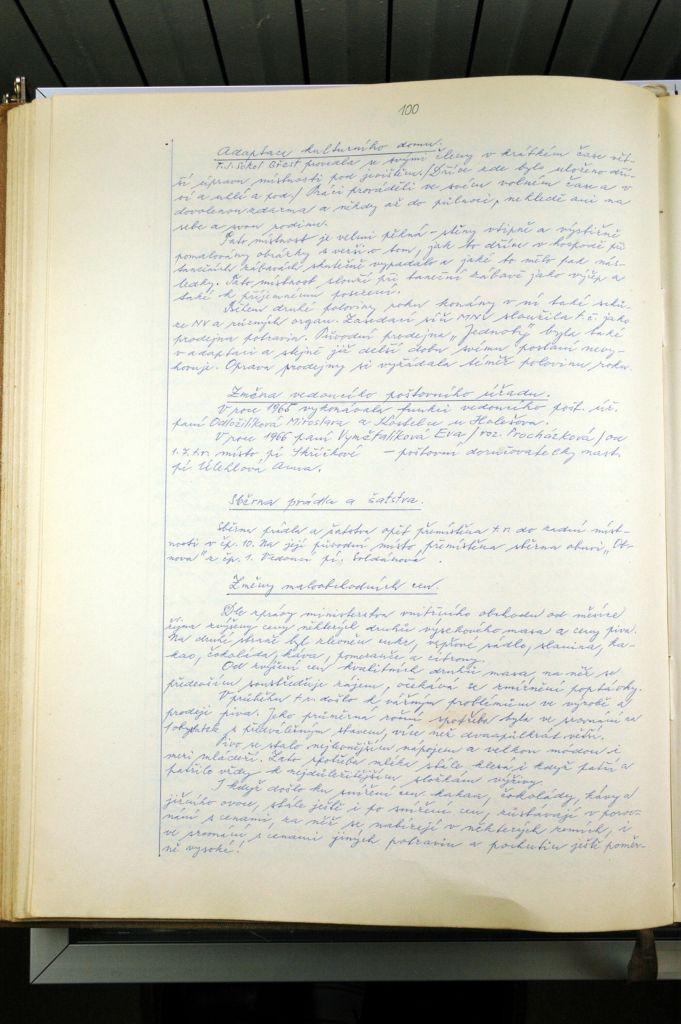 100
Adaptace kulturního domu.
T.J. Sokol Břest provedla se svými členy v krátkém čase vět-
ší úpravu místnosti pod jevištěm. /Dříve zde bylo uloženo dří-
ví a uhlí a pod./ Práci prováděli ve svém volném čase a v
dovolenou zdarma a někdy až do půlnoci, nehledě ani na
sebe a svou rodinu.
Tato místnost je velmi pěkná - stěny vtipně a výstižně
pomalovány obrázky s verši o tom, jak to dříve v hospodě při
tanečních zábavách skutečně vypadalo a jaké to mělo pak násl-
ledky. Tato místnost slouží při taneční zábavě jako výčep a
také k příjemnému posezení.
Během druhé poloviny roku konány v ní také schů-
ze NV a různých organ. Zasedací síň MNV sloužila t.č. jako
prodejna potravin. Původní prodejna „Jednoty" byla také
v adaptaci a stejně již delší dobu svému poslání nevy-
hovuje. Oprava prodejny si vyžádala téměř polovinu roku.
Změna vedoucího poštovního úřadu.
V roce 1965 vykonávala funkci vedoucího pošt. úř.
paní Odložilíková Miroslava z Kostelce u Holešova.
V roce 1966 paní Vymětalíková Eva /roz. Procházková/ od
1.7. t.r. místo pí Skříčkové - poštovní doručovatelky nast.
pí Úlehlová Anna.
Sběrna prádla a šatstva.
Sběrna prádla a šatstva opět přemístěna t.r. do zadní míst-
nosti v čp. 10. Na její původní místo přemístěna sběrna obuvi „Ob-
nova" z čp. 1. Vedoucí pí. Soldánová.
Změny maloobchodních cen.
Dle zprávy ministerstva vnitřního obchodu od měsíce
října zvýšeny ceny některých druhů výsekového masa a ceny piva.
Na druhé straně byl zlevněn cukr, vepřové sádlo, slanina, ka-
kao, čokoláda, káva, pomeranče a citrony.
Od zvýšení cen kvalitních druhů masa, na něž se
především soustřeďuje zájem, očekává se zmírnění poptávky.
V průběhu t.r. došlo k vážným problémům ve výrobě a
prodeji piva. Jeho průměrná roční spotřeba byla ve srovnání na
1 obyvatele s předválečným stavem, více než dvaapůlkrát větší.
Pivo se stalo nejhojnějším nápojem a velkou módou i
mezi mládeží. Zato spotřeba mléka stále klesá i když patří a
patřilo vždy k nejdůležitějším složkám výživy.
I když došlo ku snížení cen kakaa, čokolády, kávy a
jižního ovoce, stále ještě i po snížení cen, zůstávají v porov-
nání s cenami, za něž se nabízejí v některých zemích, i
ve srovnání s cenami jiných potravin a pochutin ještě poměr-
ně vysoké!